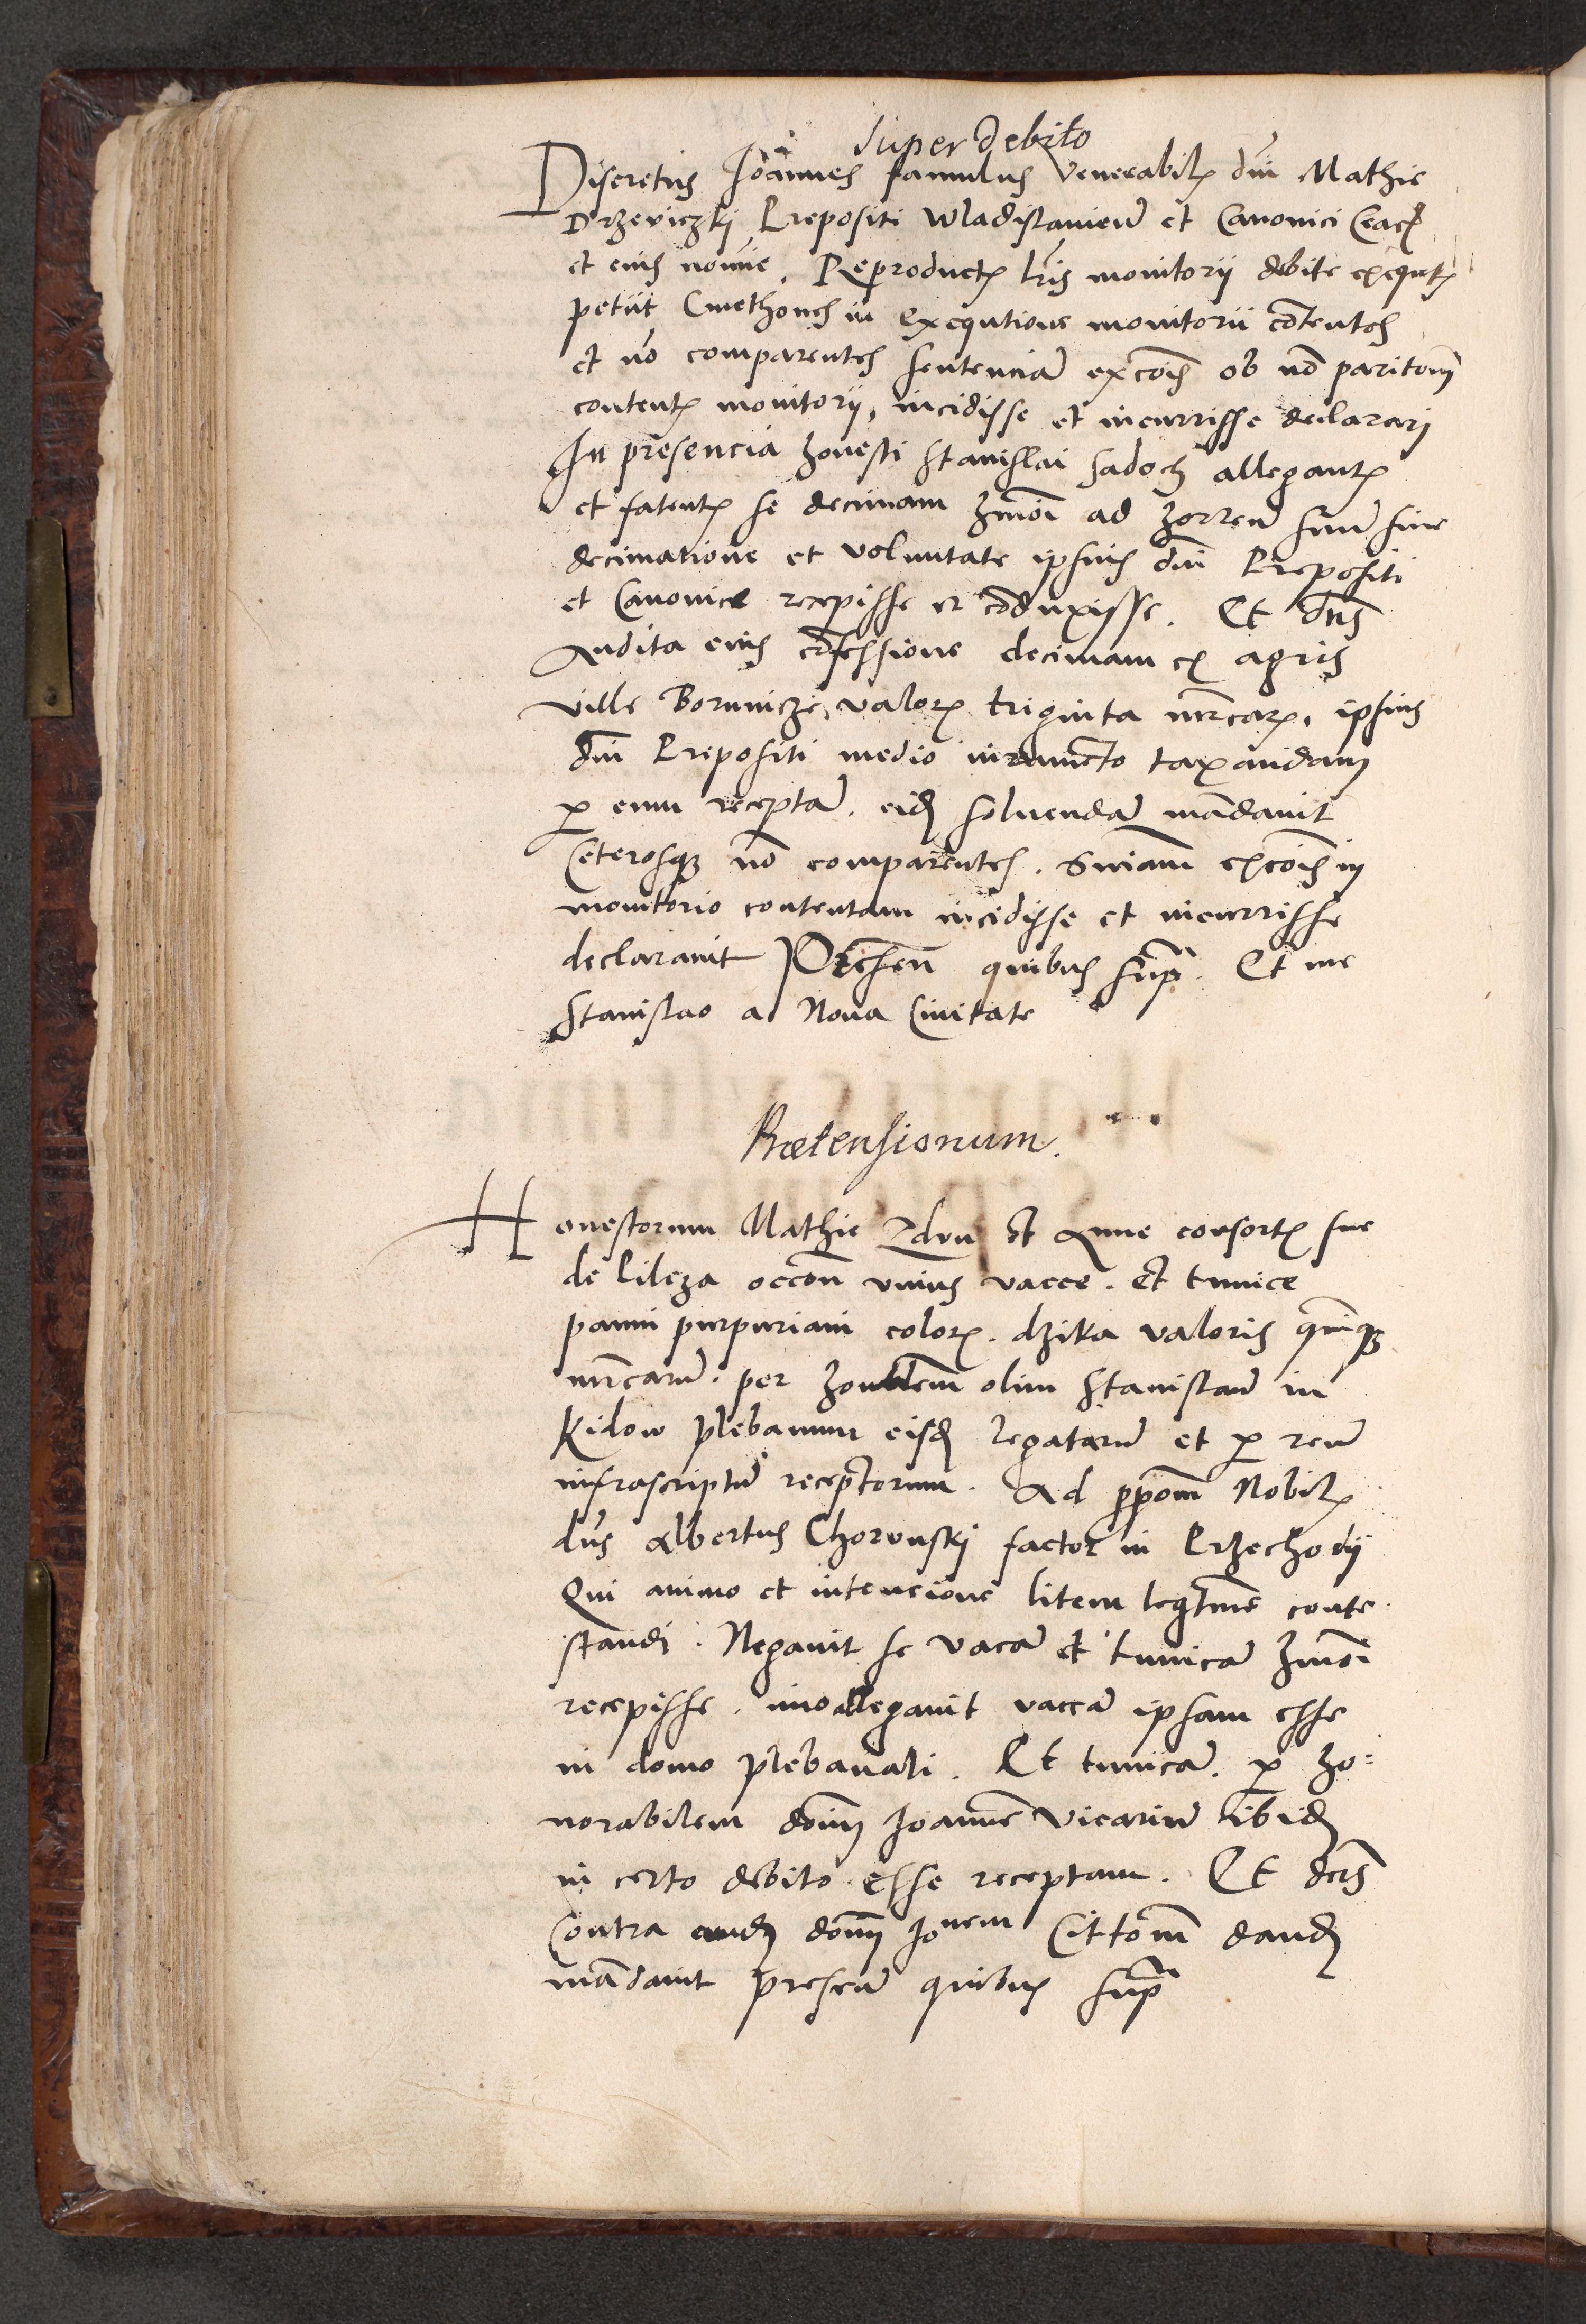 Super Debito
Discretus Joannes famulus Venerabilis dni Mathie
Drzeviczkj Prepositi Wladislaviens et Canonici Crac
et eius nomine. Reproductis lris monitorij debite exequtis
petiit Cmethones in exequtione monitorii contentos
et no comparentes sentencia excois ob no paritom
contentis monitorij, incidisse et incurrisse declarari
In presencia honesti Stanislai Sadoch allegantis
et fatentis se decimam hmoi ad horreu suu sine
decimatione et voluntate ipsius dni Prepositi
et Canonici recepisse et conduxisse. Et dns
Audita eius confessione decimam ex agris
ville Borunicze, valoris triginta mrcar, ipsius
dni Prepositi medio iuramento taxandam
per eum recepta. eid solvenda mandavit
Ceterosq no comparentes. Sniam excois in
monitorio contentam incidisse et incurrisse
declaravit Presen quibus supra. Et me
Stanislao a Nova Civitate
Prætensionum.
Honestorum Mathie Zdun et Anne consortis sue
de Pilcza occon unius vacce. et tunice
panni purpuriani coloris. dzika valoris quinq
mrcaru. per honblem olim Stanislau in
Kidow plebanum eisd legataru et per reu
infrascriptu receptorum. Ad ppom Nobilis
dns Albertus Chorunskj factor in Przechodij
Qui animo et intencione litem legitme conte
standi. Negavit se vaca et tunica hmoi
recepisse. imo allegavit vacca ipsam esse
in domo plebanali. Et tunica. per ho=
norabilem dom Joanne Vicariu ibid
in certo debito esse receptam. Et dns
Contra eund dom Jonem Cittom dand
mandavit presen quibus supra